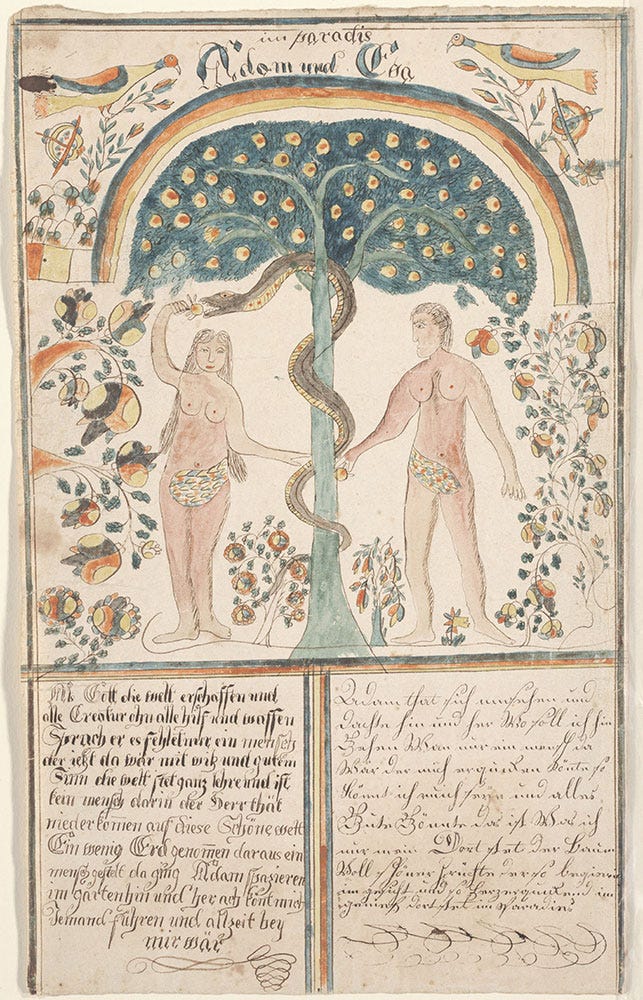 im paradis
Adam und Eva
Als Gott die welt erschaffen und
alle Creatur ohn alle hilf und waffen
Sprach er es fehlet nur ein mensch
der jetzt da wär mit witz und gutem
Sinn die welt stet ganz lehre und ist
kein mensch darin der Herr that
niederkomen auf diese Schöne welt
Ein wenig Erd genomen daraus ein
mensch gestelt da ging Adam spazieren
im garten hin und her ach könt mich
Jemand führen und allzeit bey
mir wär
Adam that sich umsehen und
dachte hin und her Wo soll ich hin
Gehen Wan nur ein mensch da
Wär der mich erquicken könte so
Könnt ich reich sein und alles
Gute Könnte das ist Was ich
nur mein Dort stet der Baum
Voll schöner früchte der so begierig
im gesicht und so herzerquickend im
geniess dort stet im Paradies